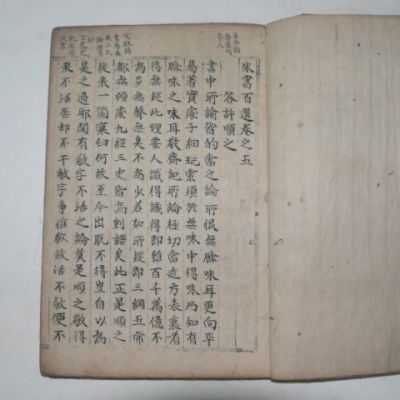 朱書百選卷之五
答許順之
書中所論皆的當之論所恨無餘味耳更向平
易着實處子細玩索須於無味中得味乃知有
餘味之味耳敬齋記所論極切當近方表裏看
得無疑此理要人識得識得即雖百千萬億不
為多無聲無臭不為少若如所疑即三綱五常
都無頓處九經三史皆為剩語矣此正是順之
從來一箇窠臼何故至今出脫不得豈自以為
是之過耶聞有敬字不活之論莫是順之敬得
來不活否却不干敬字事惟敬故活不敬便不